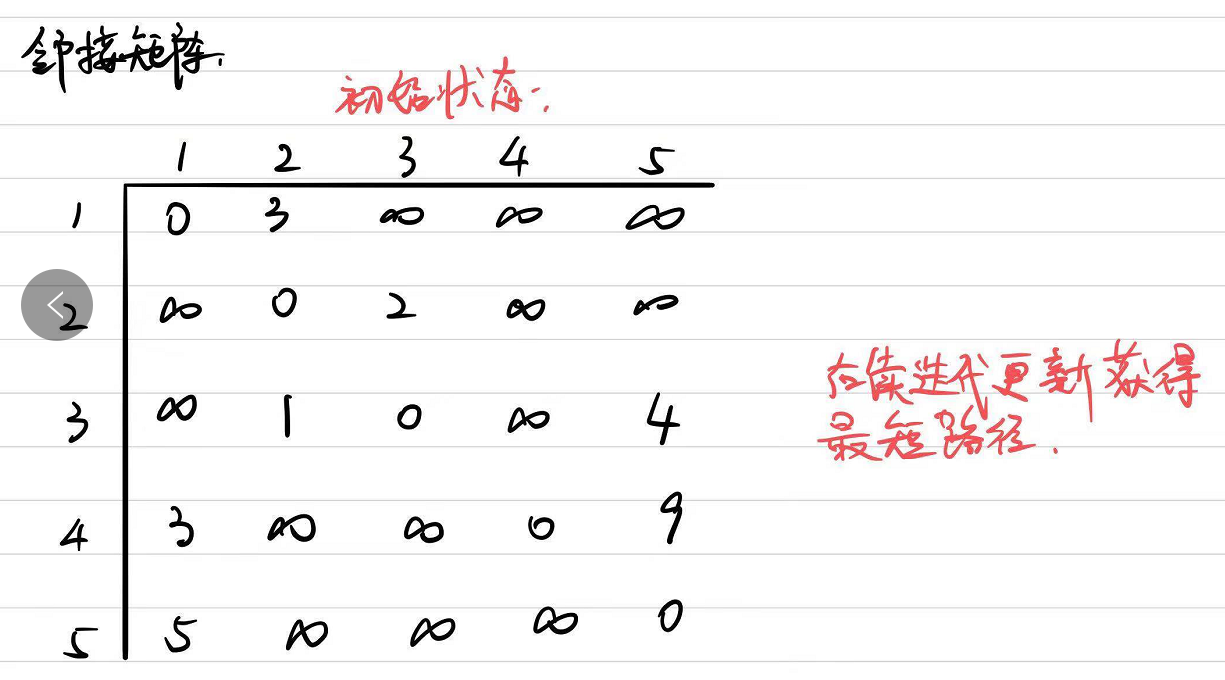 邻接矩阵.
初始状态:
1 2 3 4 5
1 0 3 ∞ ∞ ∞
2 ∞ 0 2 ∞ ∞
3 ∞ 1 0 ∞ 4
4 3 ∞ ∞ 0 9
5 5 ∞ ∞ ∞ 0
后续迭代更新获得
最短路径.